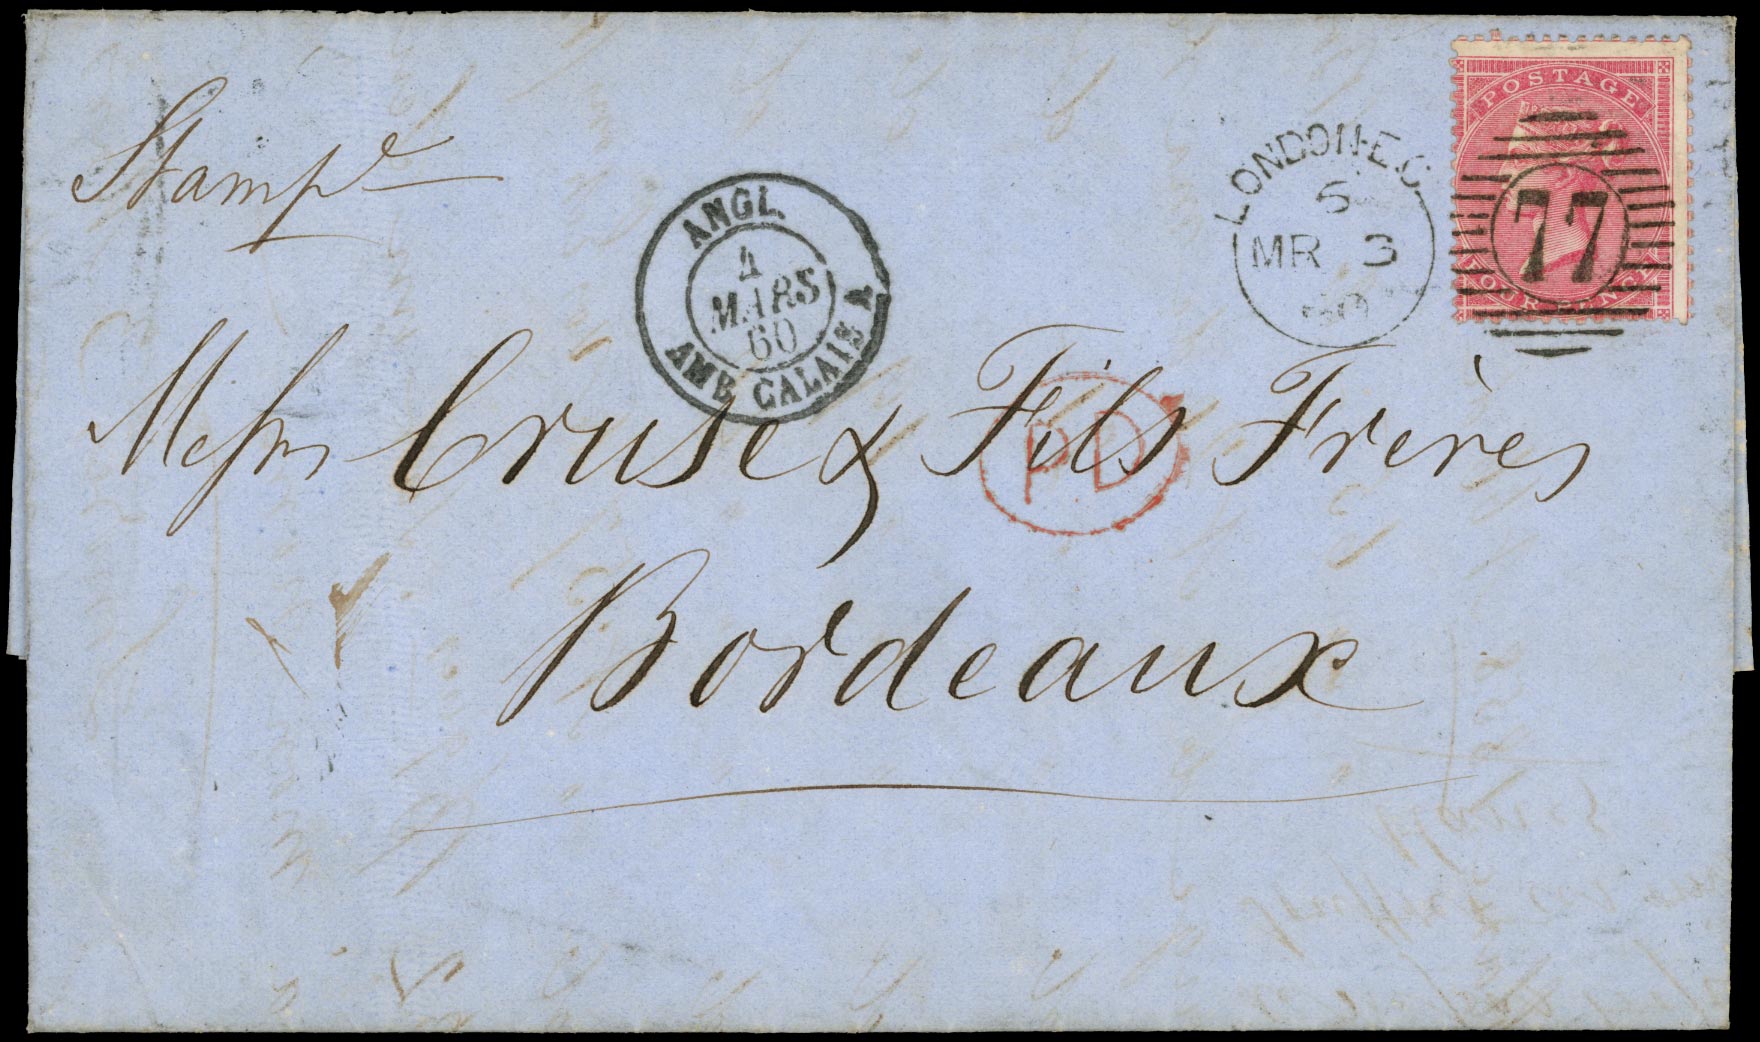 Stampe
POSTAGE
FOUR PENCE
77
LONDON-E.C
5
MR 3
60
ANGL.
4
MARS
60
AMB. CALAIS A
Messrs Cruse & Fils Frères
PD
Bordeaux